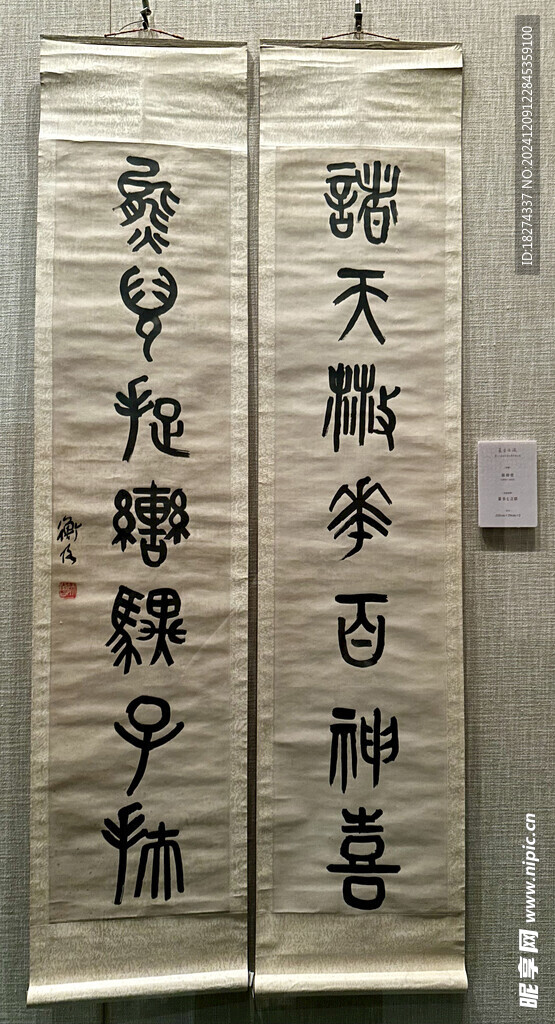 諸天散華百神喜
熊兒捉轡驥子扶
ID:18274337 NO:20241209122845359100
昵享网 www.nipic.cn